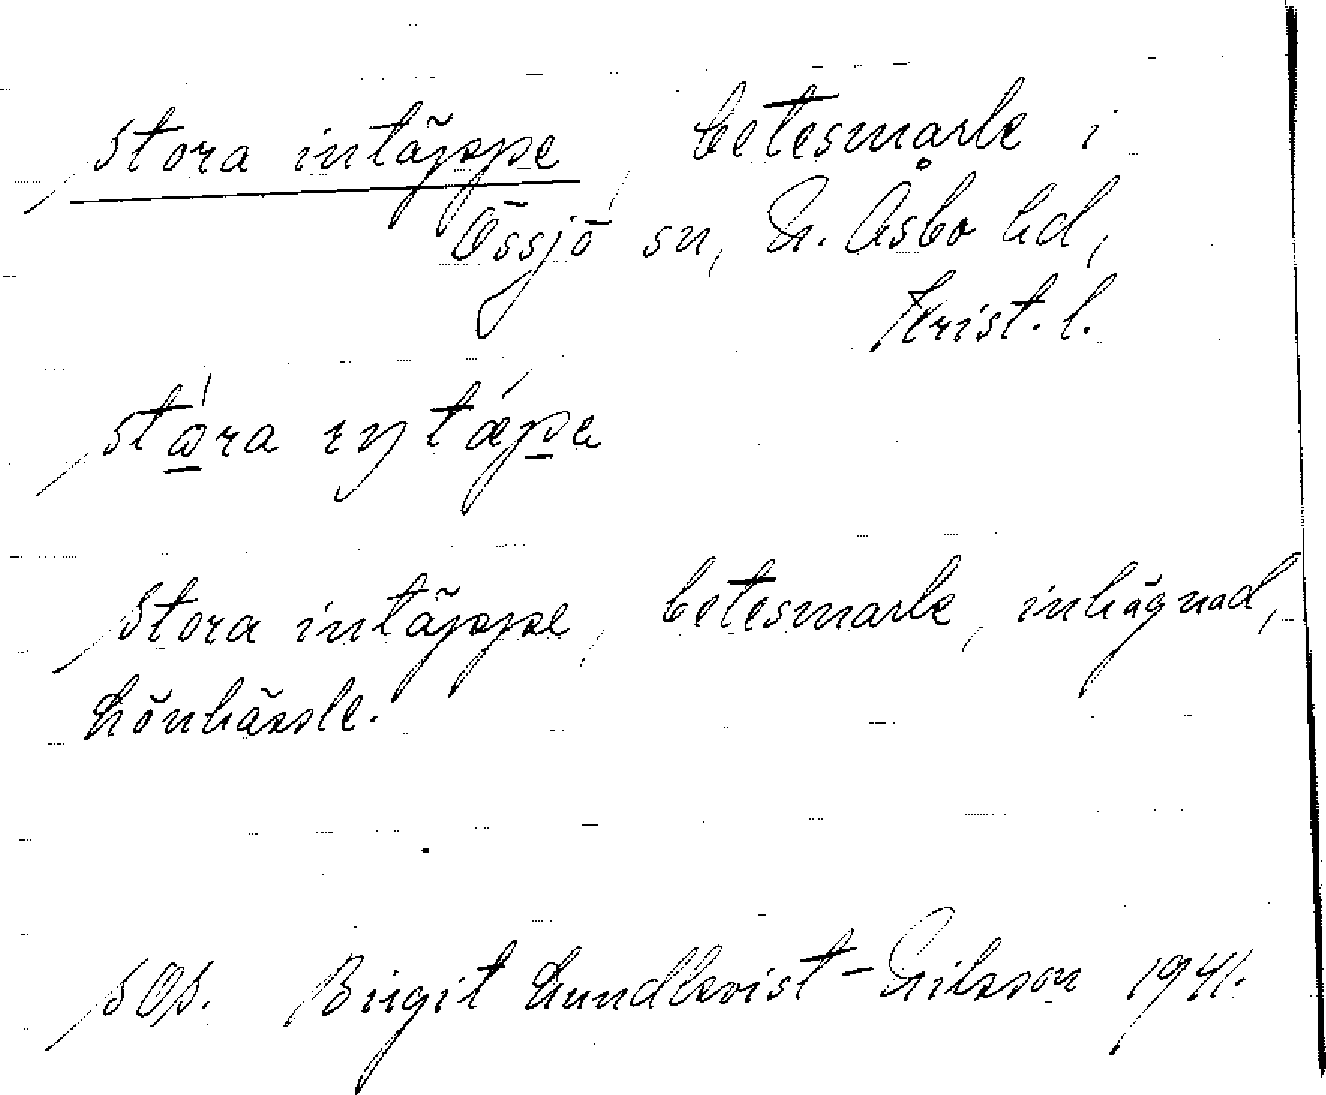 Stora intäppe, betesmark i
Össjö sn, N. Åsbo hd,
Krist. l.
stora intäpe
Stora intäppe, betesmark, inhägnad,
Lönhässle.
SOS. Birgit Lundkvist-Nilsson 1941.